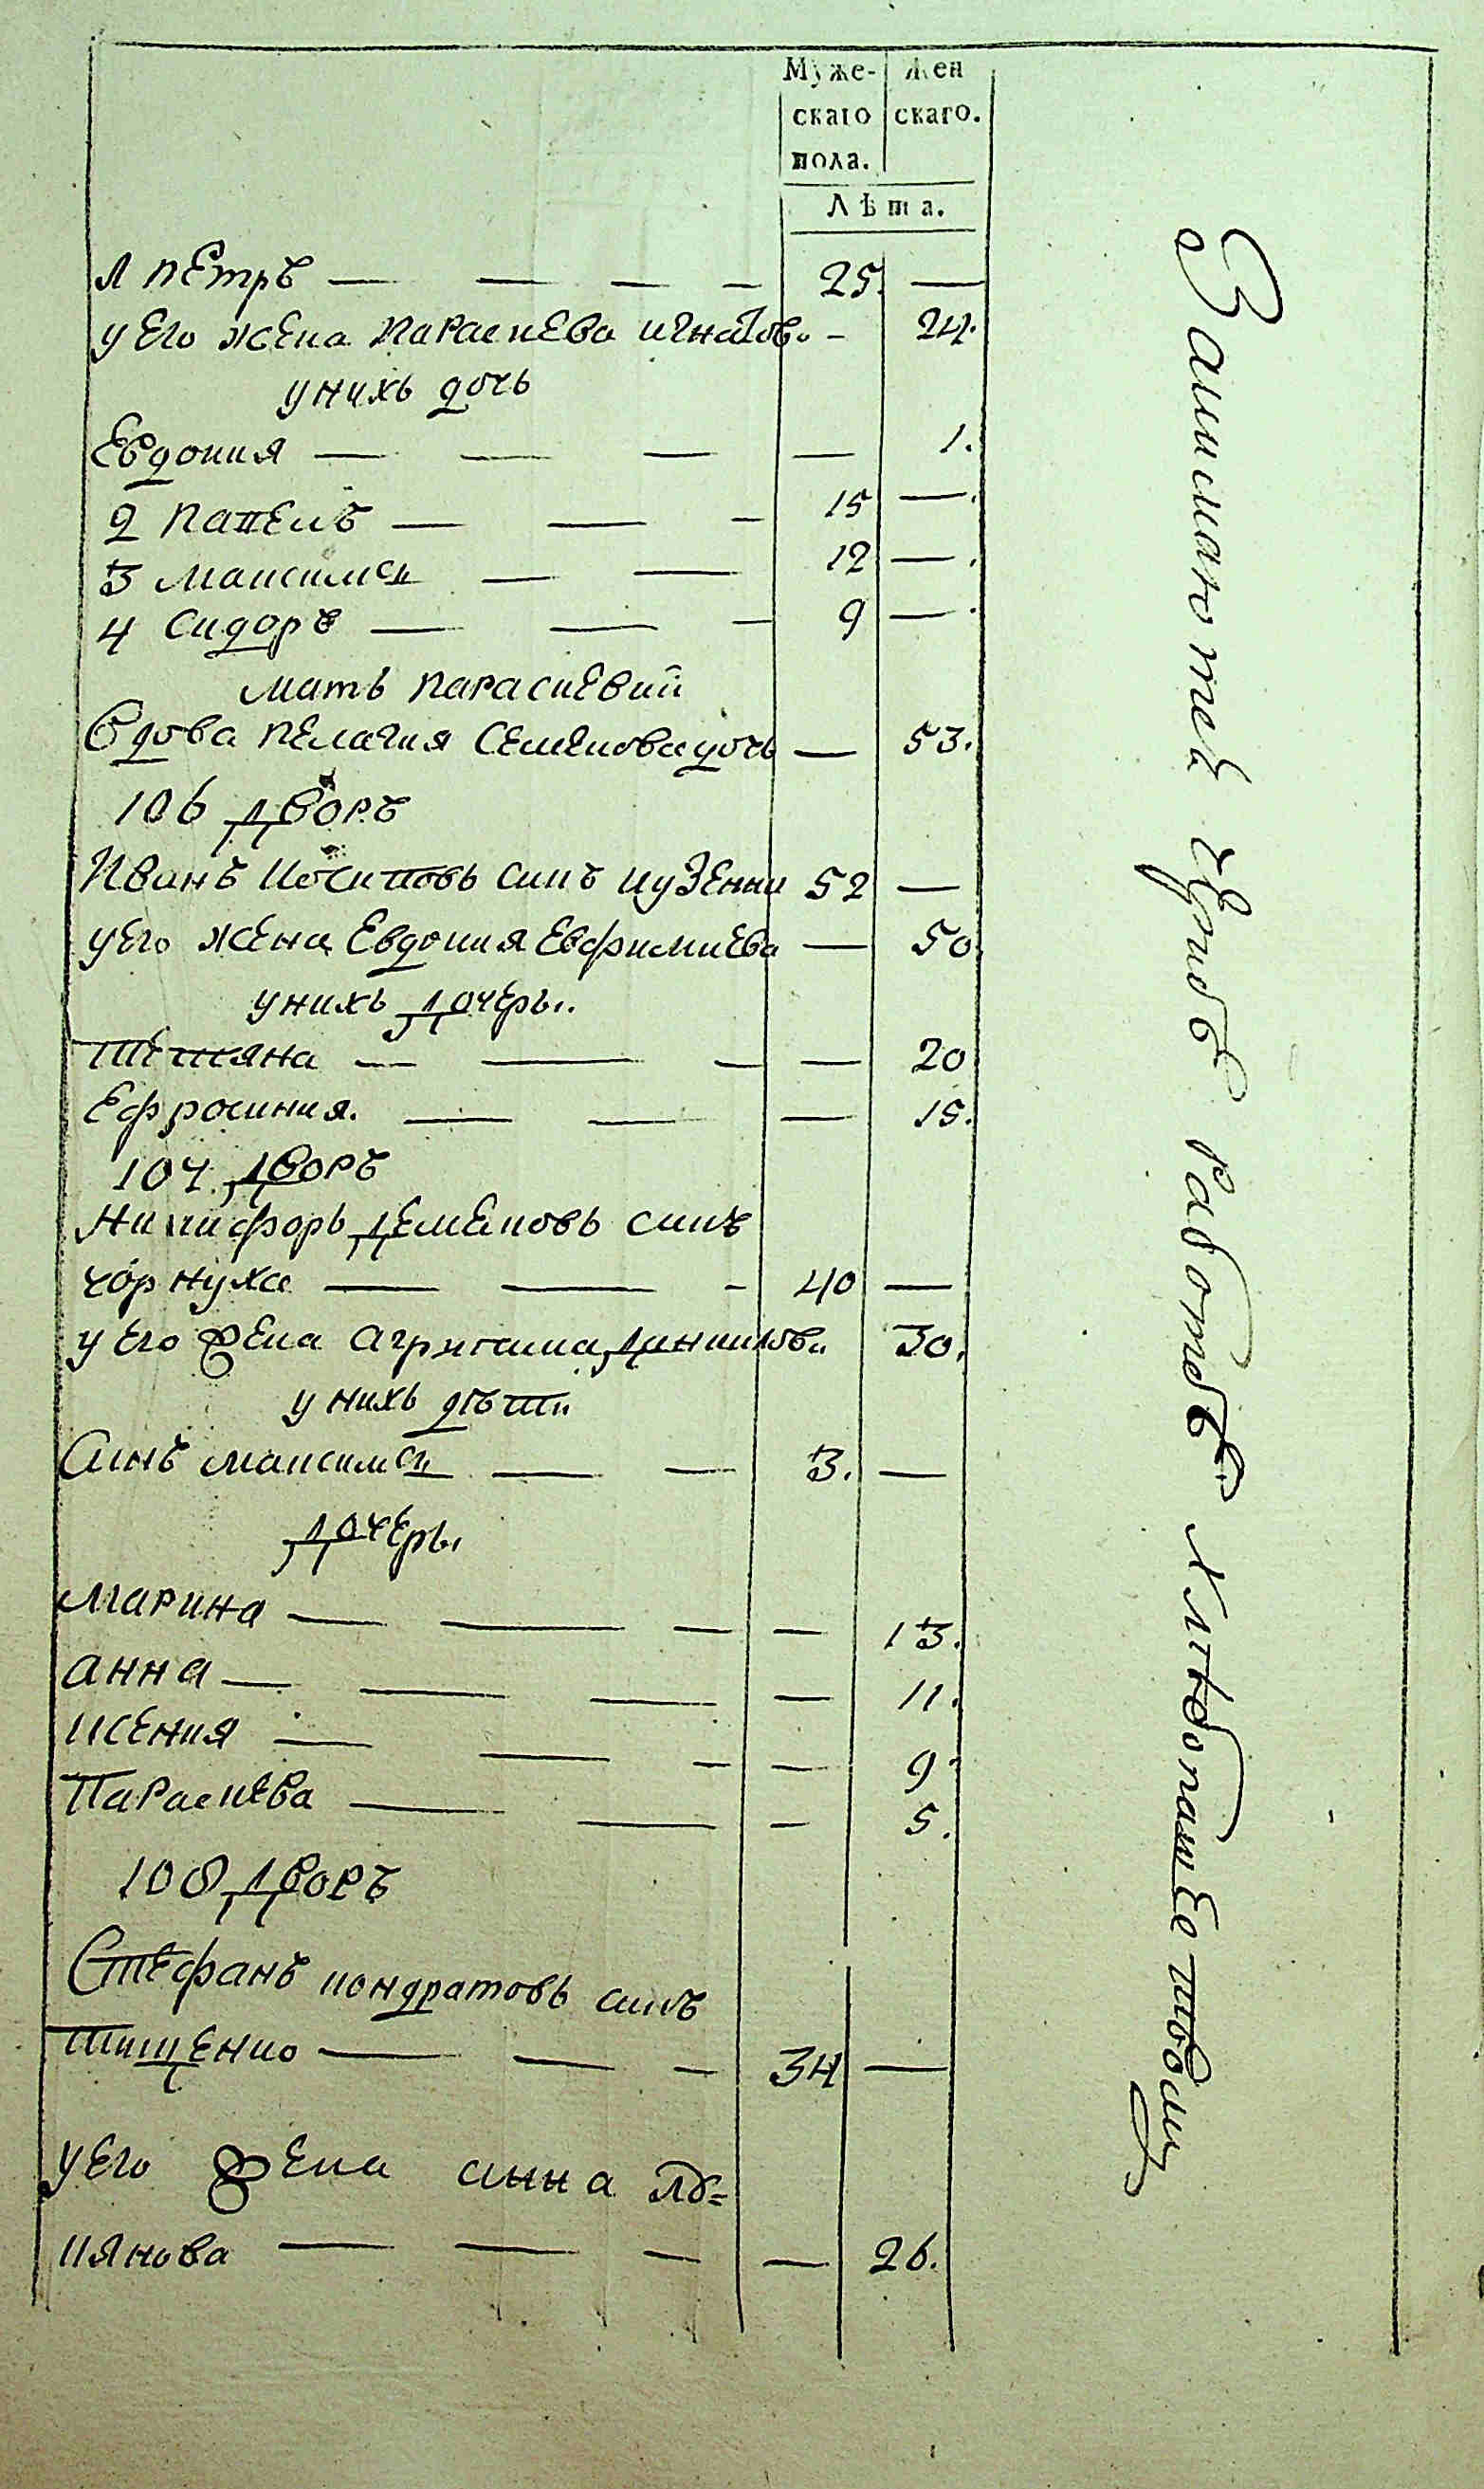 Муже- Жен
скаго скаго.
пола.
Лѣта.
1 Петръ — — — — 25. —
у Его жена Параскева игнатов. — 24.
унихъ дочь
Евдокия — — — — 1.
2 Павелъ — — — 15 —
3 Максимъ — — 12 —
4 Сидоръ — — — 9 —
мать параскевий
Вдова пелагия Семенова дочь — 53.
106 дворъ
Иванъ Иосиповъ синъ кузенки 52 —
уЕго жена Евдокия Евфимиева — 50
унихъ дочеры.
Тетяна — — — — 20
Ефросиния. — — — 15.
107 дворъ
Никифоръ Демяновъ синъ
чорнуха — — — 40 —
у Его жена агрипина данилов. 30.
у нихъ дѣти
Синъ максимъ — — 3. —
дочеры
Марина — — — — 13.
анна — — — — 11.
ксения — — — — 9.
Параскева — — — 5.
108 дворъ
Стефанъ кондратовъ синъ
тищенко — — — 34 —
уЕго жена анна лу=
кянова — — — — 26.
Занимаютей чризъ работовъ хлѣбопашеством